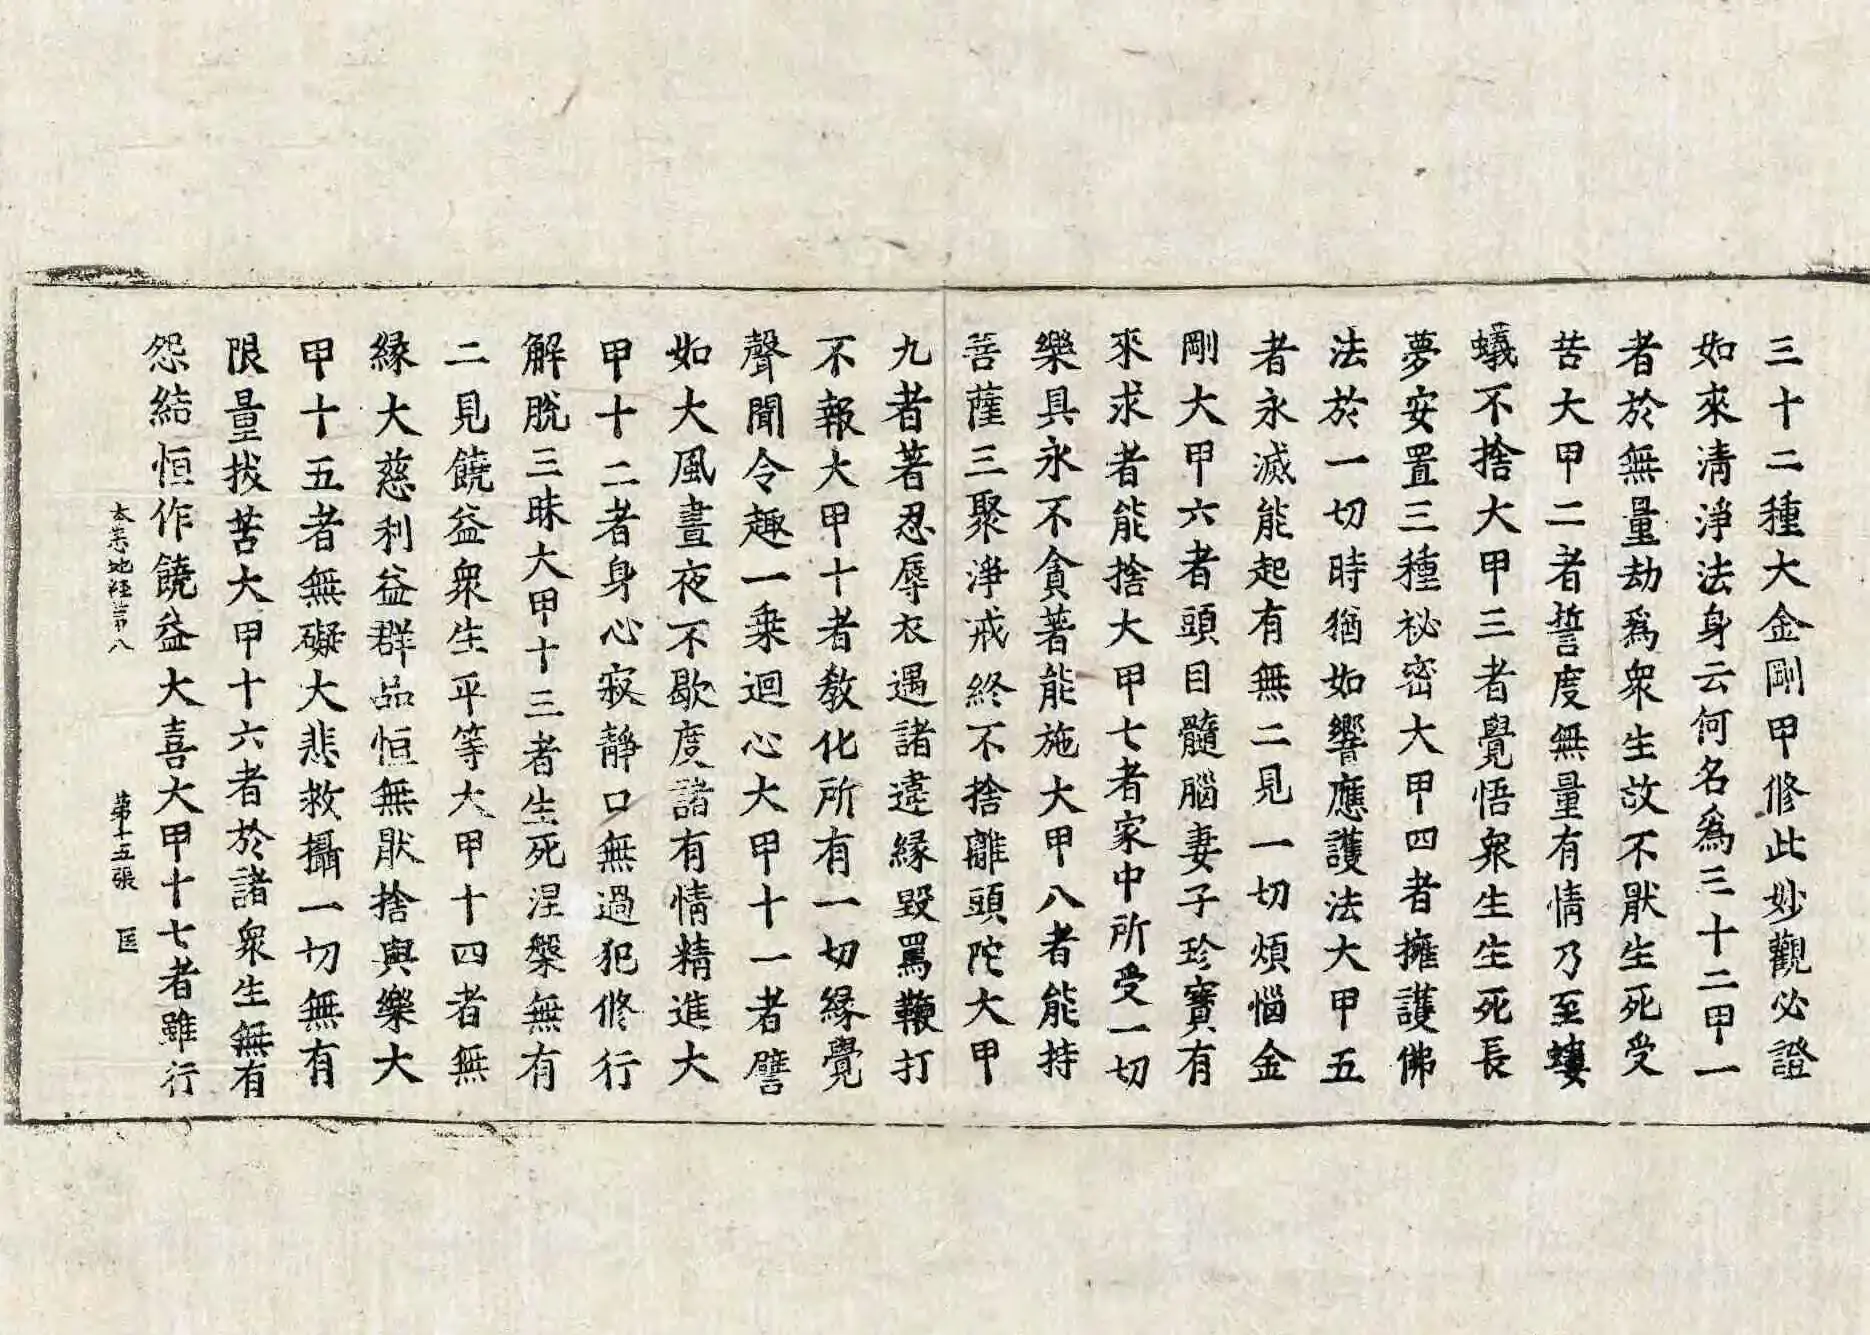 三十二種大金剛甲修此妙觀必證
如來清淨法身云何名爲三十二甲一
者於無量劫爲衆生故不猒生死受
苦大甲二者誓度無量有情乃至螻
蟻不捨大甲三者覺悟衆生生死長
夢安置三種祕密大甲四者擁護佛
法於一切時猶如響應護法大甲五
者永滅能起有無二見一切煩惱金
剛大甲六者頭目髓腦妻子珍寶有
來求者能捨大甲七者家中所受一切
樂具永不貪著能施大甲八者能持
菩薩三聚淨戒終不捨離頭陀大甲
九者著忍辱衣遇諸違緣毀罵鞭打
不報大甲十者敎化所有一切緣覺
聲聞令趣一乗迴心大甲十一者譬
如大風晝夜不歇度諸有情精進大
甲十二者身心寂靜口無過犯修行
解脫三昧大甲十三者生死涅槃無有
二見饒益衆生平等大甲十四者無
緣大慈利益群品恒無猒捨與樂大
甲十五者無礙大悲救攝一切無有
限量拔苦大甲十六者於諸衆生無有
怨結恒作饒益大喜大甲十七者雖行
地經第八 第十五張 匡